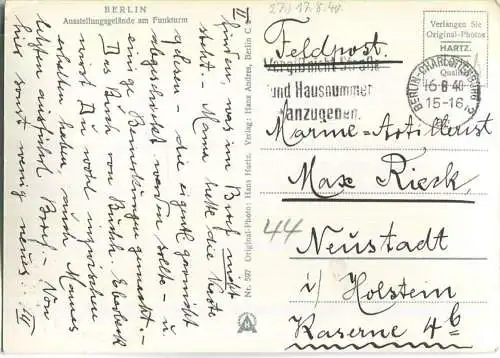 BERLIN
Ausstellungsgelände am Funkturm
II
finden, was im Brief nicht
steht. - Mama hatte die Karte
gelesen - die eigentl.
abgeschickt werden sollte - u.
einige Bemerkungen gemacht. -
Das Buch von
wirst Du wohl inzwischen
erhalten haben, auch Mamas
letzten ausführl. Brief. - Von
hier sonst wenig neues. III
Nr. 597 Original-Photo: Hans Hartz. Verlag: Hans Andres, Berlin C 2
27.) 17.8.40.
Feldpost.
Vergiß nicht Straße
und Hausnummer
anzugeben.
Verlangen Sie
Original-Photos
HARTZ.
Qualität
BERLIN-CHARLOTTENBURG 2
16 8 40
15-16
Marine-Artillerist
Max Rieck,
44
Neustadt
i/ Holstein
Kaserne 4b